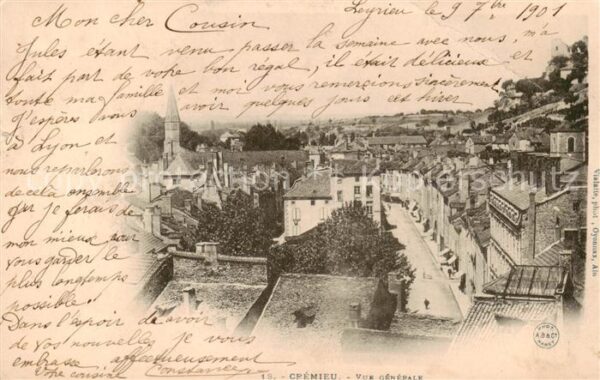 Leyrieu le 9 7bre 1901
Mon cher Cousin
Jules étant venu passer la semaine avec nous, m'a
fait part de votre bon régal, il était délicieux et
toute ma famille et moi vous remercions sincèrement
J'espère vous avoir quelques jours cet hiver
à Lyon et
nous reparlerons
de cela ensemble
Car je ferais de
mon mieux pour
vous garder le
plus longtemps
possible!
Dans l'espoir de avoir
de vos nouvelles je vous
embrasse affectueusement
Votre cousine Constance
Vialatte, phot., Oyonnax, Ain
18. - CRÉMIEU. - VUE GÉNÉRALE